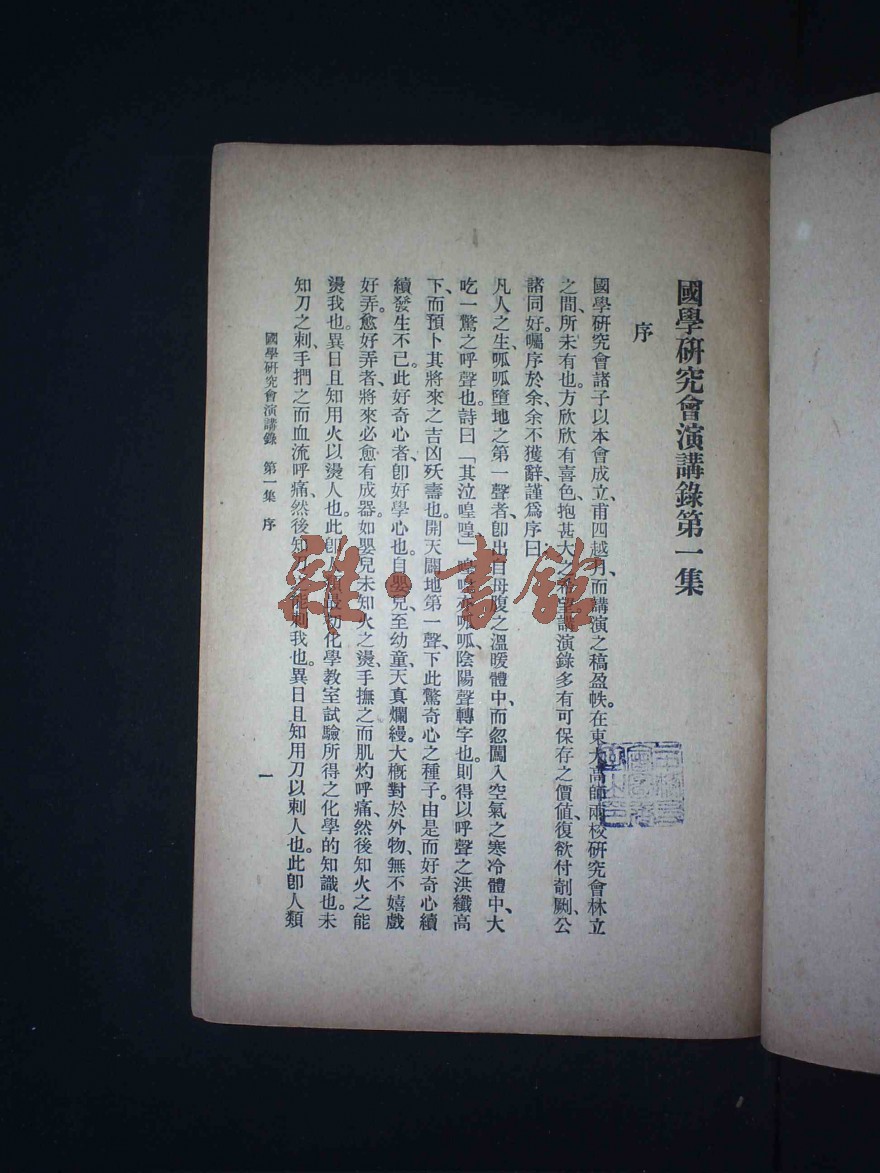 國學研究會演講錄第一集
序
國學研究會諸子以本會成立、甫四越月、而講演之稿盈帙。在東大高師兩校研究會林立
之間、所未有也。方欣欣有喜色、抱甚大之希望。講演錄多有可保存之價値、復欲付剞劂、公
諸同好。囑序於余、余不獲辭、謹爲序曰、
凡人之生、呱呱墮地之第一聲者、卽出自母腹之溫暖體中、而忽闖入空氣之寒冷體中、大
吃一驚之呼聲也。詩曰「其泣喤喤」喤喤亦呱呱、陰陽聲轉字也。則得以呼聲之洪纖高
下、而預卜其將來之吉凶殀壽也。開天闢地第一聲、下此驚奇心之種子。由是而好奇心續
續發生不已。此好奇心者、卽好學心也。自嬰兒至幼童、天眞爛縵。大槪對於外物、無不嬉戲
好弄。愈好弄者、將來必愈有成器。如嬰兒未知火之燙、手撫之而肌灼呼痛、然後知火之能
燙我也。異日且知用火以燙人也。此卽人類最初化學敎室試驗所得之化學的知識也。未
知刀之刺、手捫之而血流呼痛、然後知刀之能刺我也。異日且知用刀以刺人也。此卽人類
國學研究會演講錄 第一集 序
一
雜·書館